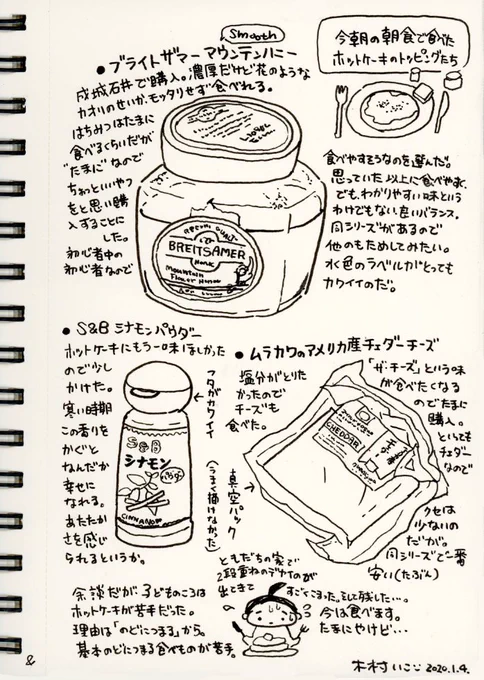 今朝の朝食で食べた
ホットケーキのトッピングたち
Smooth
• ブライトザマー マウンテンハニー
成城石井で購入。濃厚だけど花のような
カオリのせいか、モッタリせず食べれる。
はちみつはたまに
食べるくらいだが
"たまに"なので
ちょっといいやつ
をと思い購
入することに
した。
初心者中の
初心者なので
食べやすそうなのを選んだ。
思っていた以上に食べやすく、
でも、わかりやすい味という
わけでもない、良いバランス。
同シリーズがあるので
他のもためしてみたい。
水色のラベルがとっても
カワイイのだ。
BREITSAMER
Honig
Mountain
Flower Honey
• S&B シナモンパウダー
ホットケーキにもう一味ほしかった
ので少し
かけた。
寒い時期
この香りを
かぐと
なんだか
幸せに
なれる。
あたたか
さを感じ
られるというか。
フタがカワイイ
S&B
シナモン
パウダー
CINNAMON
• ムラカワのアメリカ産チェダーチーズ
塩分がとりた
かったので
チーズも
食べた。
「ザ・チーズ」という味
が食べたくなる
のでたまに
購入。
といっても
チェダー
なので
クセは
少ないの
だが。
同シリーズで一番
安い(たぶん)
CHEDDAR
真空パック
(うまく描けなかった)
余談だが、子どものころは
ホットケーキが苦手だった。
理由は「のどにつまる」から。
基本のどにつまる食べものが苦手。
ともだちの家で
2段重ねのデカイのが
出てきて
すごくこまった。そして残した…。
今は食べます。
たまにやけど…
&
木村いこ 2020.1.4.